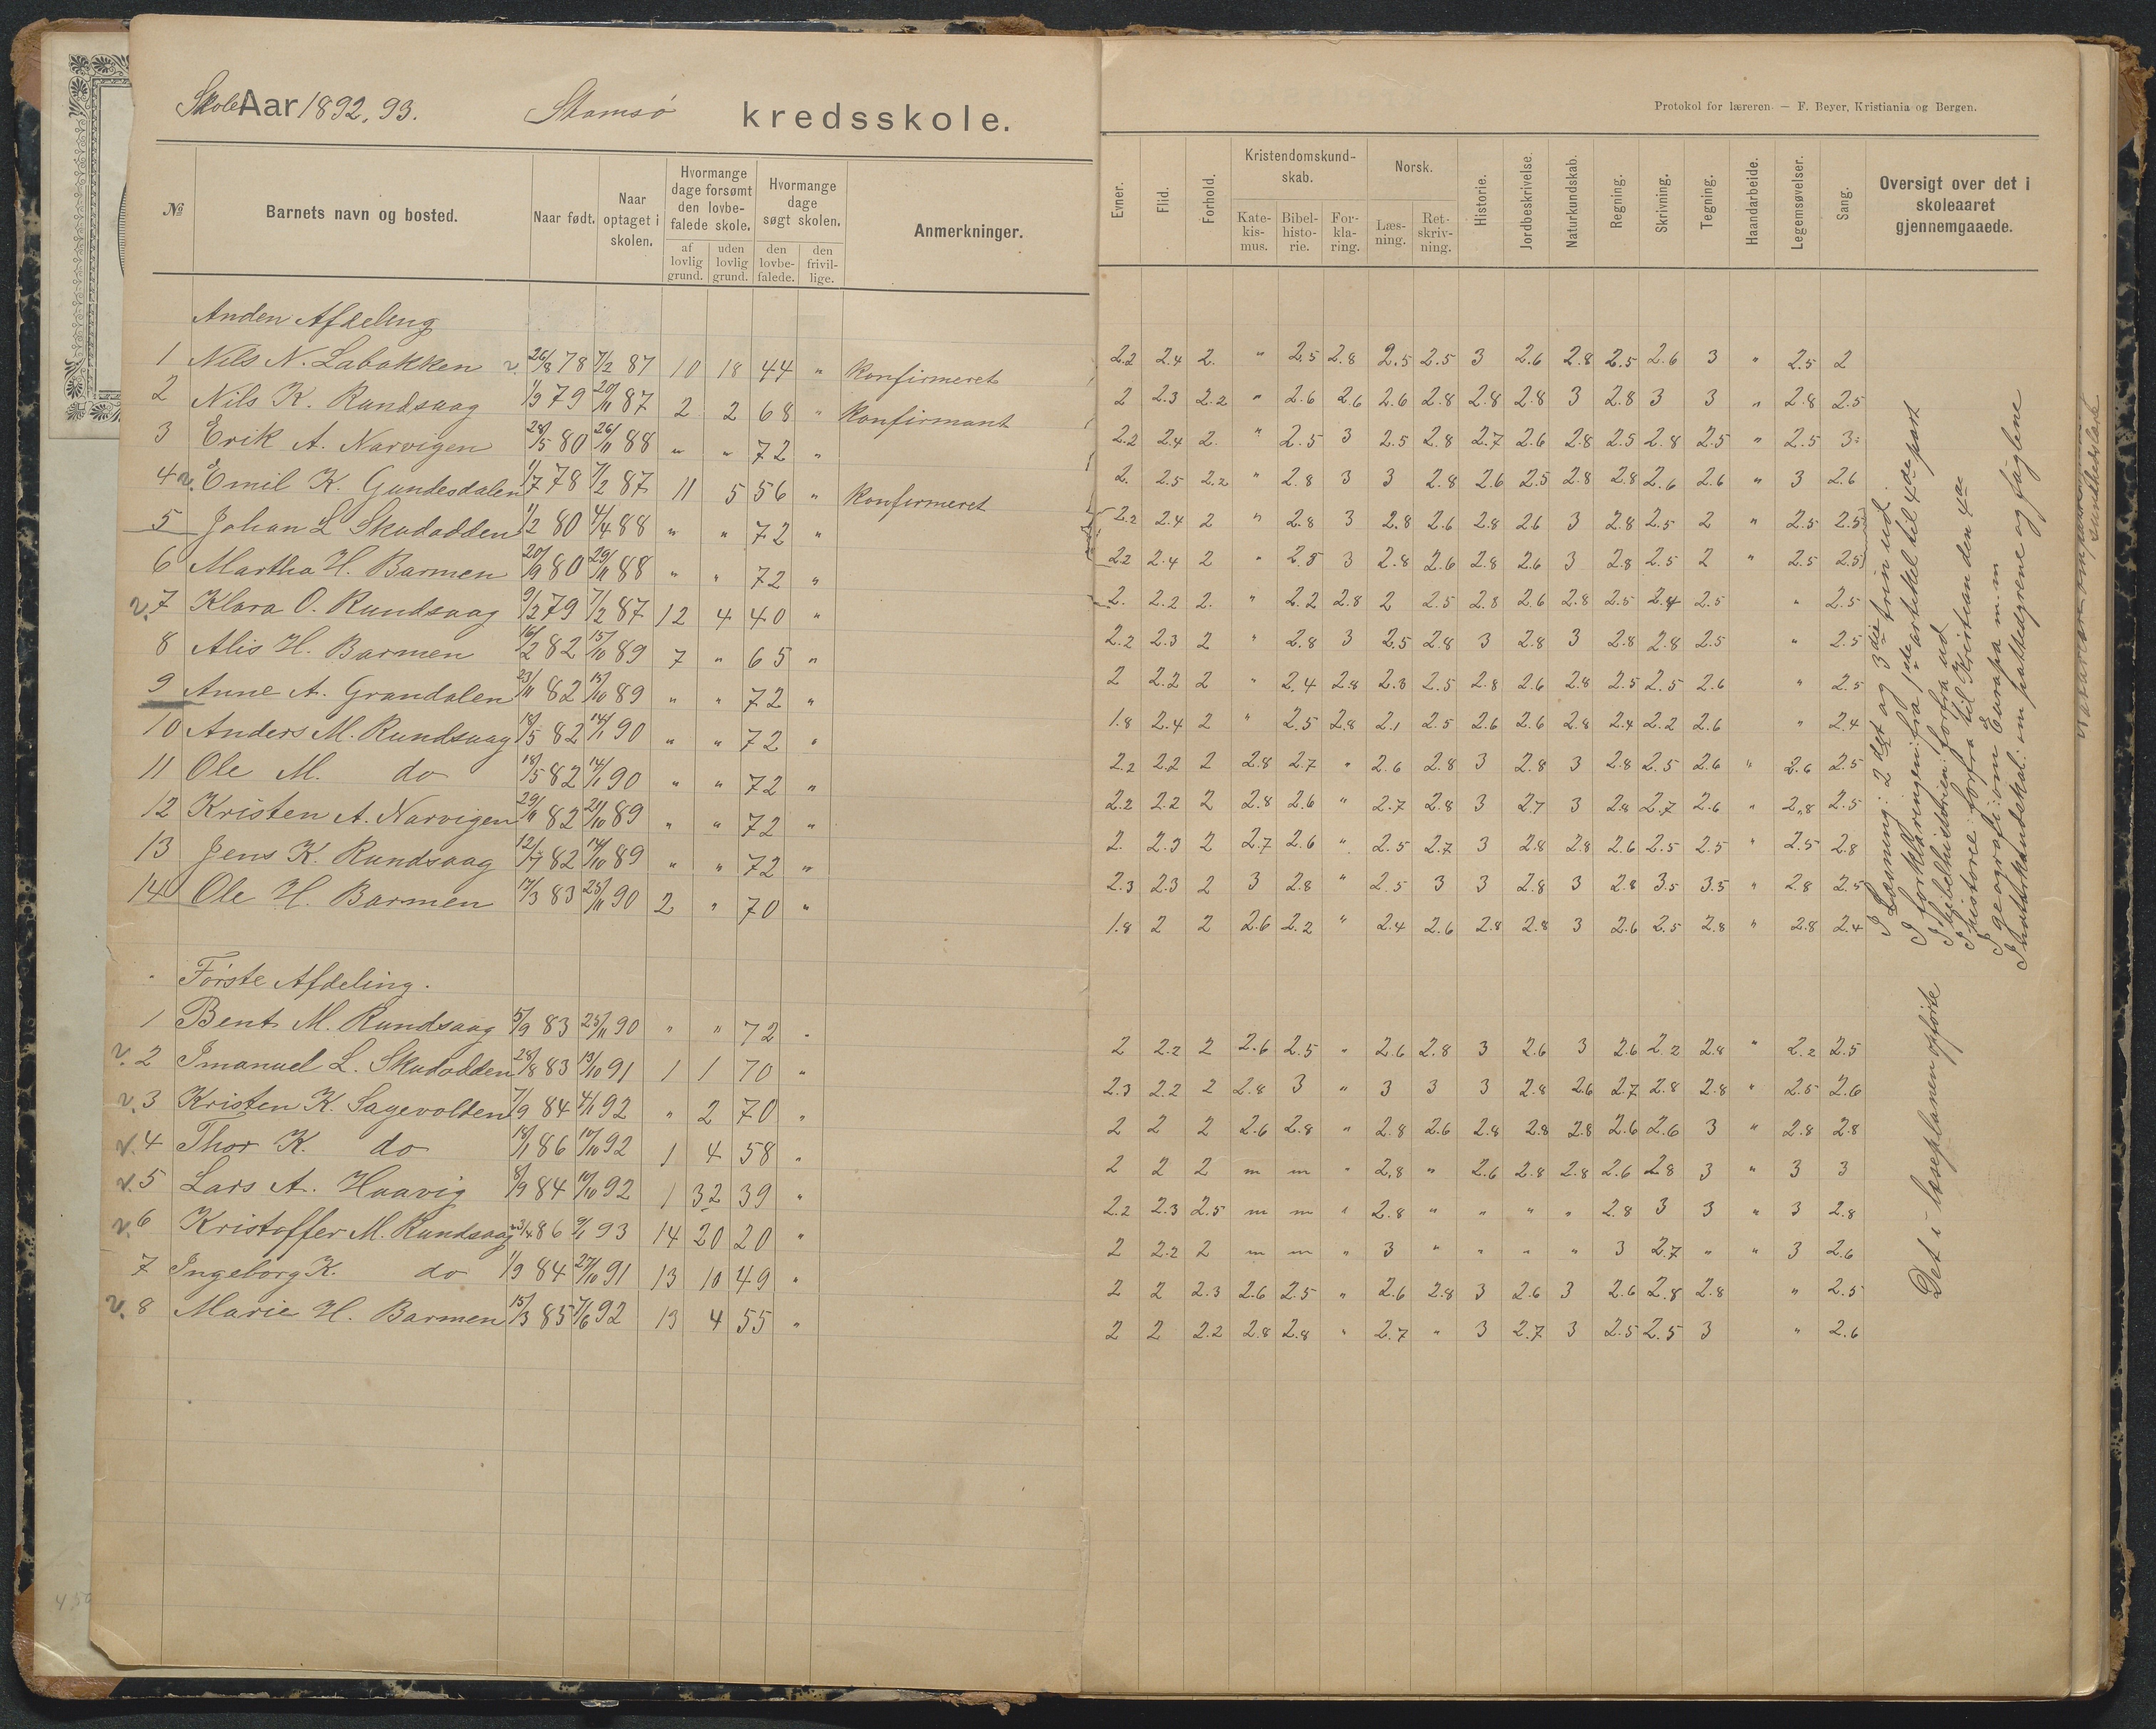 SkoleAar 1892, 93. Stamsø kredsskole.
№ Barnets navn og bosted. Naar født. Naar optaget i skolen. Hvormange dage forsømt den lovbefalede skole. af lovlig grund. uden lovlig grund. Hvormange dage søgt skolen. den lovbefalede. den frivillige. Anmerkninger.
Anden Afdeling
1 Nils N. Labakken 26/8 78 7/2 87 10 18 44 " Konfirmeret
2 Nils K. Rundsaag 1/3 79 20/11 87 2 2 68 " Konfirmant
3 Erik A. Narvigen 28/5 80 26/11 88 " " 72 "
4 Emil K. Gundesdalen 1/7 78 7/2 87 11 5 56 " Konfirmeret
5 Johan L Skudodden 1/2 80 4/4 88 " " 72 "
6 Martha H. Barmen 20/9 80 29/11 88 " " 72 "
7 Klara O. Rundsaag 9/2 79 7/2 87 12 4 40 "
8 Alis H. Barmen 16/2 82 15/10 89 7 " 65 "
9 Anne A. Grandalen 23/11 82 15/10 89 " " 72 "
10 Anders M. Rundsaag 18/5 82 14/1 90 " " 72 "
11 Ole M. do 18/5 82 14/1 90 " " 72 "
12 Kristen A. Narvigen 29/11 82 21/10 89 " " 72 "
13 Jens K. Rundsaag 12/7 82 14/10 89 " " 72 "
14 Ole H. Barmen 17/3 83 25/11 90 2 " 70 "
Første Afdeling.
1 Bent M. Rundsaag 5/9 83 25/11 90 " " 72 "
2 Imanuel L. Skudodden 28/8 83 13/10 91 1 1 70 "
3 Kristen K. Sagevolden 7/9 84 4/1 92 " 2 70 "
4 Thor K. do 18/1 86 10/10 92 1 4 58 "
5 Lars A. Haavig 8/9 84 10/10 92 1 32 39 "
6 Kristoffer M. Rundsaag 23/4 86 9/1 93 14 20 20 "
7 Ingeborg K. do 1/9 84 27/10 91 13 10 49 "
8 Marie H. Barmen 15/3 85 7/6 92 13 4 55 "
Protokol for læreren. — F. Beyer, Kristiania og Bergen.
Evner. Flid. Forhold. Kristendomskundskab. Katekismus. Bibelhistorie. Forklaring. Norsk. Læsning. Retskrivning. Historie. Jordbeskrivelse. Naturkundskab. Regning. Skrivning. Tegning. Haandarbeide. Legemsøvelser. Sang. Oversigt over det i skoleaaret gjennemgaaede.
2.2 2.4 2. " 2.5 2.8 2.5 2.5 3 2.6 2.8 2.5 2.6 3 " 2.5 2
2 2.3 2.2 " 2.6 2.6 2.6 2.8 2.8 2.8 3 2.8 3 3 " 2.8 2.5
2.2 2.4 2. " 2.5 3 2.5 2.8 2.7 2.6 2.8 2.5 2.8 2.5 " 2.5 3
2. 2.5 2.2 " 2.8 3 3 2.8 2.6 2.5 2.8 2.8 2.6 2.6 " 3 2.6
2.2 2.4 2 " 2.8 3 2.8 2.6 2.8 2.6 3 2.8 2.5 2 " 2.5 2.5
2.2 2.4 2 " 2.5 3 2.8 2.6 2.8 2.6 3 2.8 2.5 2 " 2.5 2.5
2. 2.2 2. " 2.2 2.8 2 2.5 2.8 2.6 2.8 2.5 2.4 2.5 " 2.5
2.2 2.3 2 " 2.8 3 2.5 2.8 3 2.8 3 2.8 2.8 2.5 " 2.5
2 2.2 2 " 2.4 2.8 2.3 2.5 2.8 2.6 2.8 2.5 2.5 2.6 " 2.5
1.8 2.4 2 " 2.5 2.8 2.1 2.5 2.6 2.6 2.8 2.4 2.2 2.6 " 2.4
2.2 2.2 2 2.8 2.7 " 2.6 2.8 3 2.8 3 2.8 2.5 2.6 " 2.6 2.5
2.2 2.2 2 2.8 2.6 " 2.7 2.8 3 2.7 3 2.8 2.7 2.6 " 2.8 2.5
2. 2.3 2 2.7 2.6 " 2.5 2.7 3 2.8 2.8 2.6 2.5 2.5 " 2.5 2.8
2.3 2.3 2 3 2.8 " 2.5 3 3 2.8 3 2.8 3.5 3.5 " 2.8 2.5
1.8 2 2 2.6 2.2 " 2.4 2.6 2.8 2.8 3 2.6 2.5 2.8 " 2.8 2.4
2 2.2 2 2.6 2.5 " 2.6 2.8 3 2.6 3 2.6 2.2 2.8 " 2.2 2.5
2.3 2.2 2 2.8 3 " 3 3 3 2.8 2.6 2.7 2.8 2.8 " 2.5 2.6
2 2 2 2.6 2.8 " 2.8 2.6 2.8 2.8 2.8 2.6 2.6 3 " 2.8 2.8
2 2 2 m m " 2.8 " 2.6 2.8 2.8 2.6 2.8 3 " 3 3
2.2 2.3 2.5 m m " 2.8 " " " " 2.8 3 3 " 3 2.8
2 2.2 2 m m " 3 " " " " 3 2.7 " " 3 2.6
2 2 2.3 2.6 2.5 " 2.6 2.8 3 2.6 3 2.6 2.8 2.8 " 2.5
2 2 2.2 2.8 2.8 " 2.7 " 3 2.7 3 2.5 2.5 3 " 2.6
I Læsning: 2det og 3die trin ud.
I forklaringen: fra 1ste artikel til 4de part
I bibelhistorien: forfra ud
I historie: forfra til Kristian den 4de
I geografi: om Europa m.m
I naturkundskab: om pattedyrene og fuglene
Det i læseplanen opførte